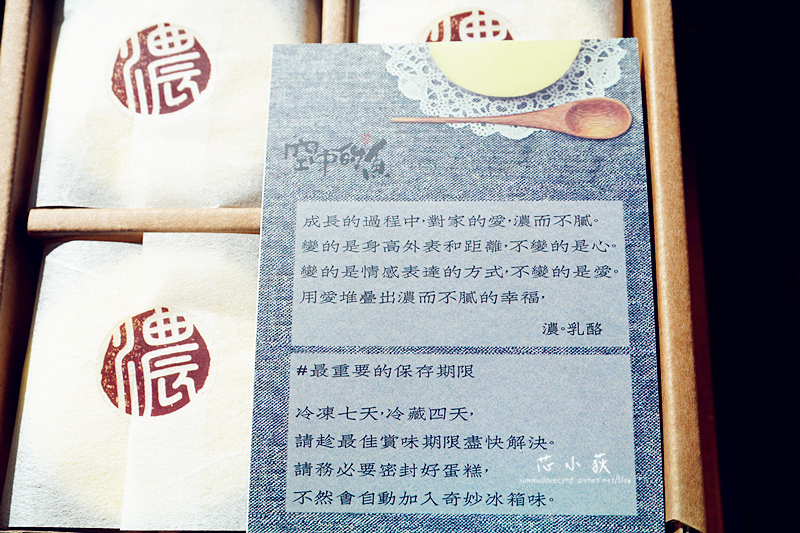 濃
空中的魚
成長的過程中,對家的愛,濃而不膩。
變的是身高外表和距離,不變的是心。
變的是情感表達的方式,不變的是愛。
用愛堆疊出濃而不膩的幸福,
濃。乳酪
濃
#最重要的保存期限
冷凍七天,冷藏四天,
請趁最佳賞味期限盡快解決。
請務必要密封好蛋糕,
不然會自動加入奇妙冰箱味。
芯小荻